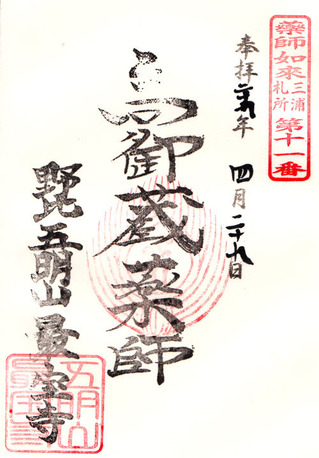 薬師如来
三浦
札所
第十一番
奉拝
年 四月二十九日
高御蔵薬師
野比五明山最宝寺
五明山
最宝寺